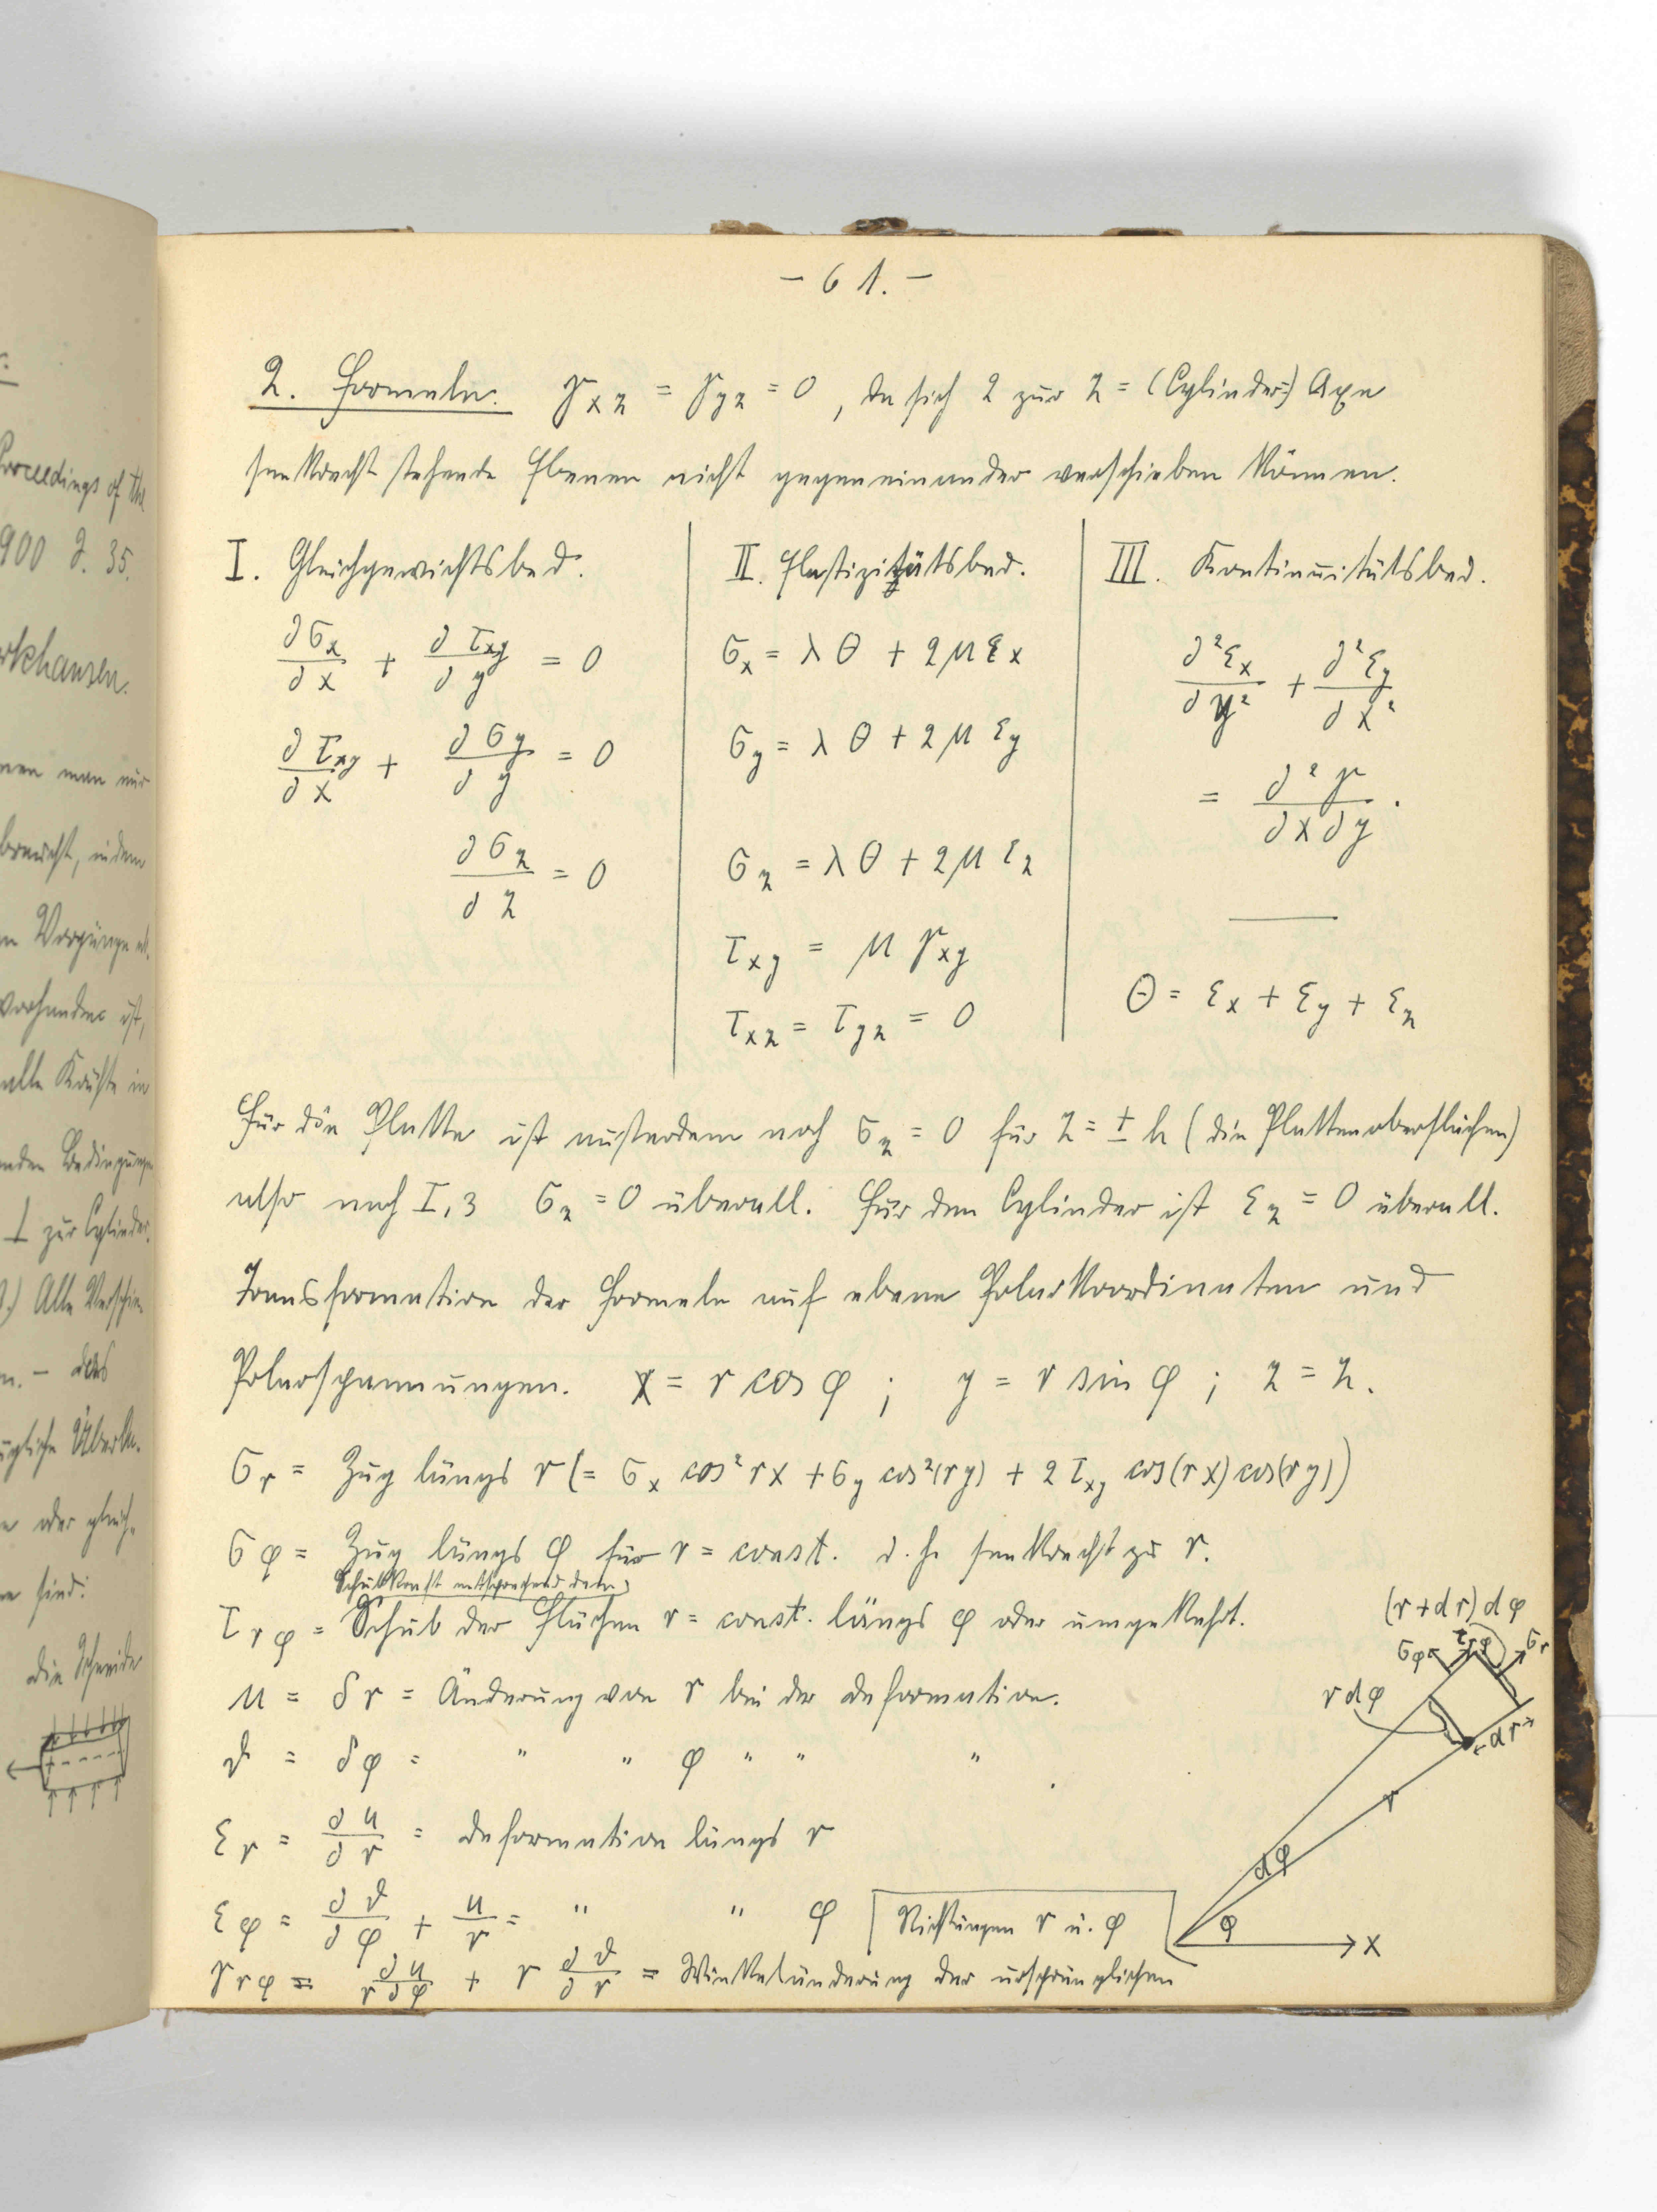 – 61. –
2. Formeln. γxz = γyz = 0, da sich 2 zur z = (Cylinder=) Axe
senkrecht stehende Ebenen nicht gegeneinander verschieben können.
I. Gleichgewichtsbed.
∂σx/∂x + ∂τxy/∂y = 0
∂τxy/∂x + ∂σy/∂y = 0
∂σz/∂z = 0
II. Elastizitätsbed.
σx = λθ + 2μεx
σy = λθ + 2μεy
σz = λθ + 2μεz
τxy = μ γxy
τxz = τyz = 0
III. Kontinuitätsbed.
∂²εx/∂y² + ∂²εy/∂x²
= ∂²γ/∂x∂y .
Θ = εx + εy + εz
Für die Platte ist ausserdem noch σz = 0 für z = ± h (die Plattenoberflächen)
also nach I,3 σz = 0 überall. Für den Cylinder ist εz = 0 überall.
Transformation der Formeln auf ebene Polarkoordinaten und
Polarspannungen. x = r cos φ ; y = r sin φ ; z = z.
σr = Zug längs r (= σx cos² rx + σy cos²(ry) + 2 τxy cos(rx) cos(ry))
σφ = Zug längs φ für r = const. d. h. senkrecht zu r.
Schubkraft entsprechend dem
τrφ = Schub der Flächen r = const. längs φ oder umgekehrt.
u = δr = Änderung von r bei der Deformation.
ϑ = δφ = " " φ " " "
εr = ∂u/∂r = Deformation längs r
εφ = ∂ϑ/∂φ + u/r = " " φ
Richtungen r u. φ
γrφ = ∂u/r∂φ + r ∂ϑ/∂r = Winkeländerung der ursprünglichen
(r+dr)dφ
σφ τrφ σr
r dφ
dr
r
dφ
φ
x
Proceedings of the
1900 S. 35.
man nur
braucht, indem
Vorgänge
vorhanden ist,
alle Kräfte in
⊥ zur Cylinder
Alle Verschie-
– das
oder gleich-
sind:
die Schneide